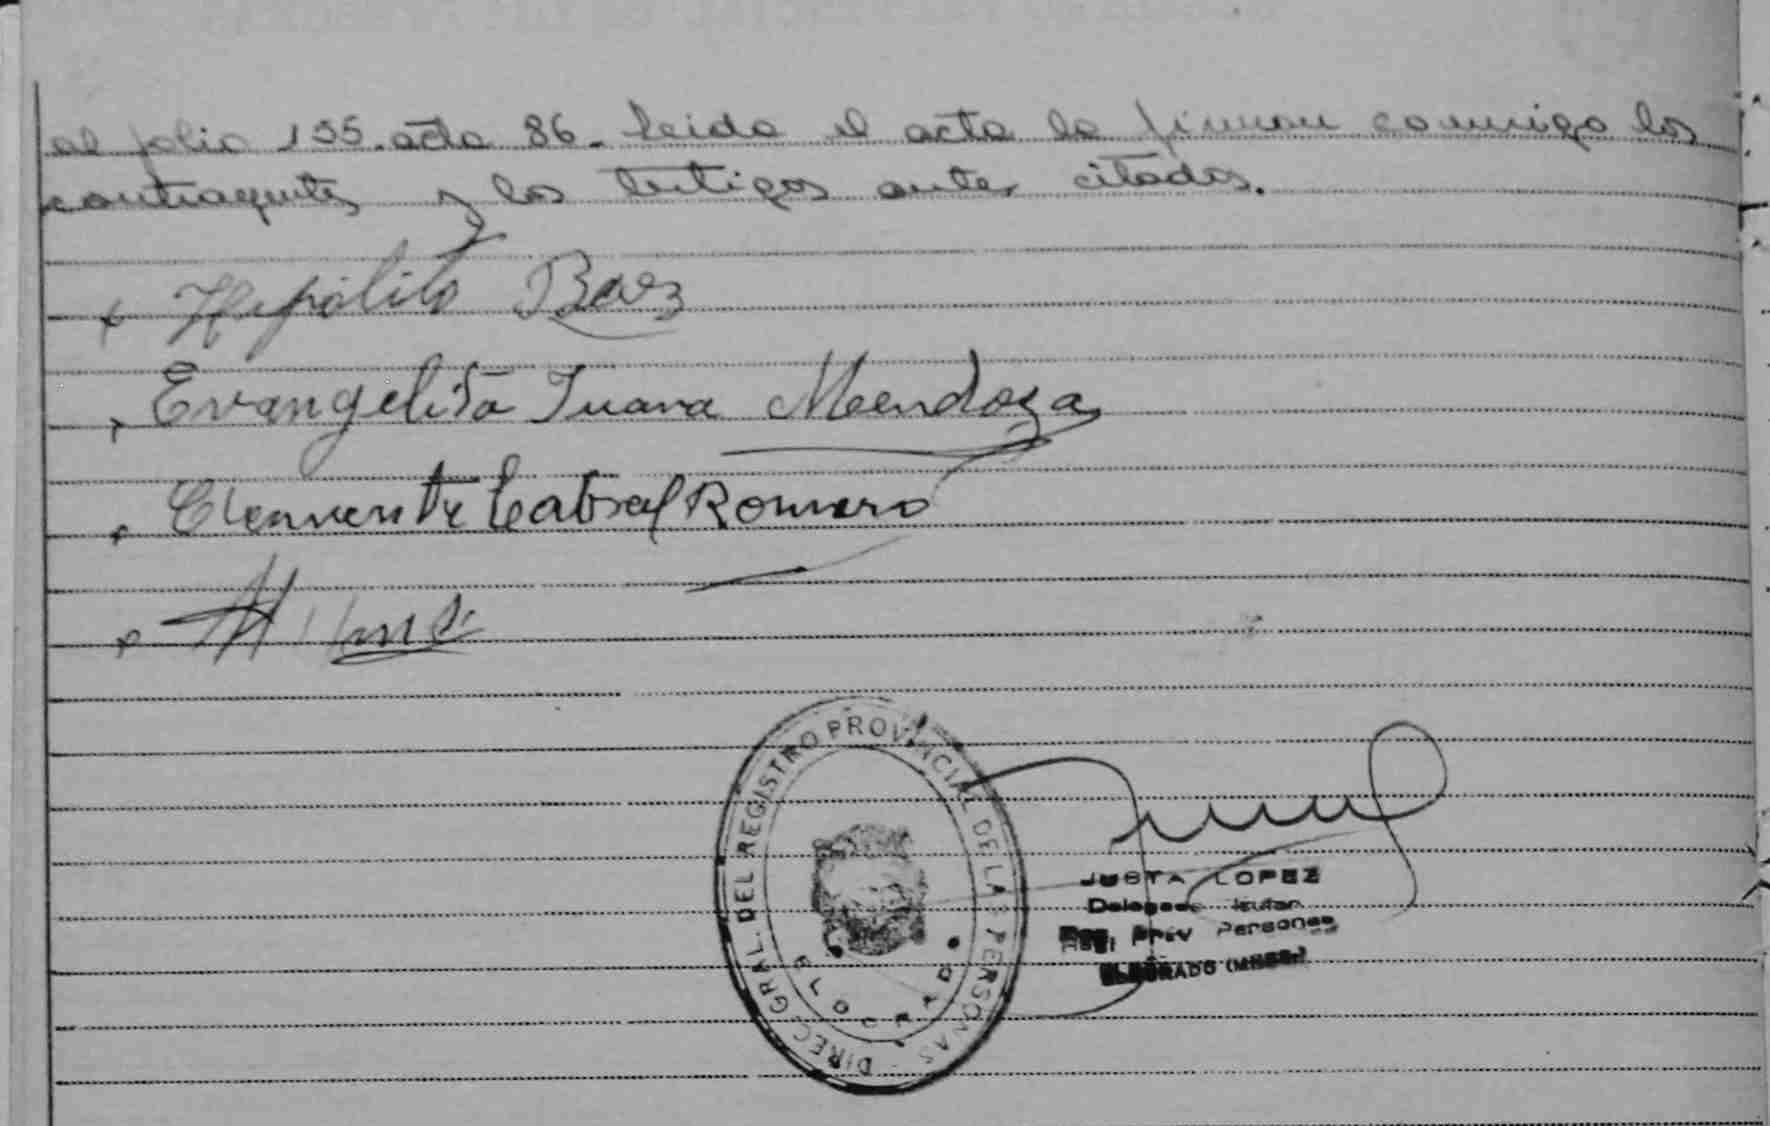 al folio 135. acta 86. Leida el acta la firman conmigo los
contrayentes y los testigos antes citados.
Hipólito Baez
Evangelista Juana Mendoza
Clemente Cabral Romero
DIREC. GRAL. DEL REGISTRO PROVINCIAL DE LAS PERSONAS
ELDORADO
JUSTA LOPEZ
Delegada Titular
Reg. Prov Personas
ELDORADO (Mnes.)